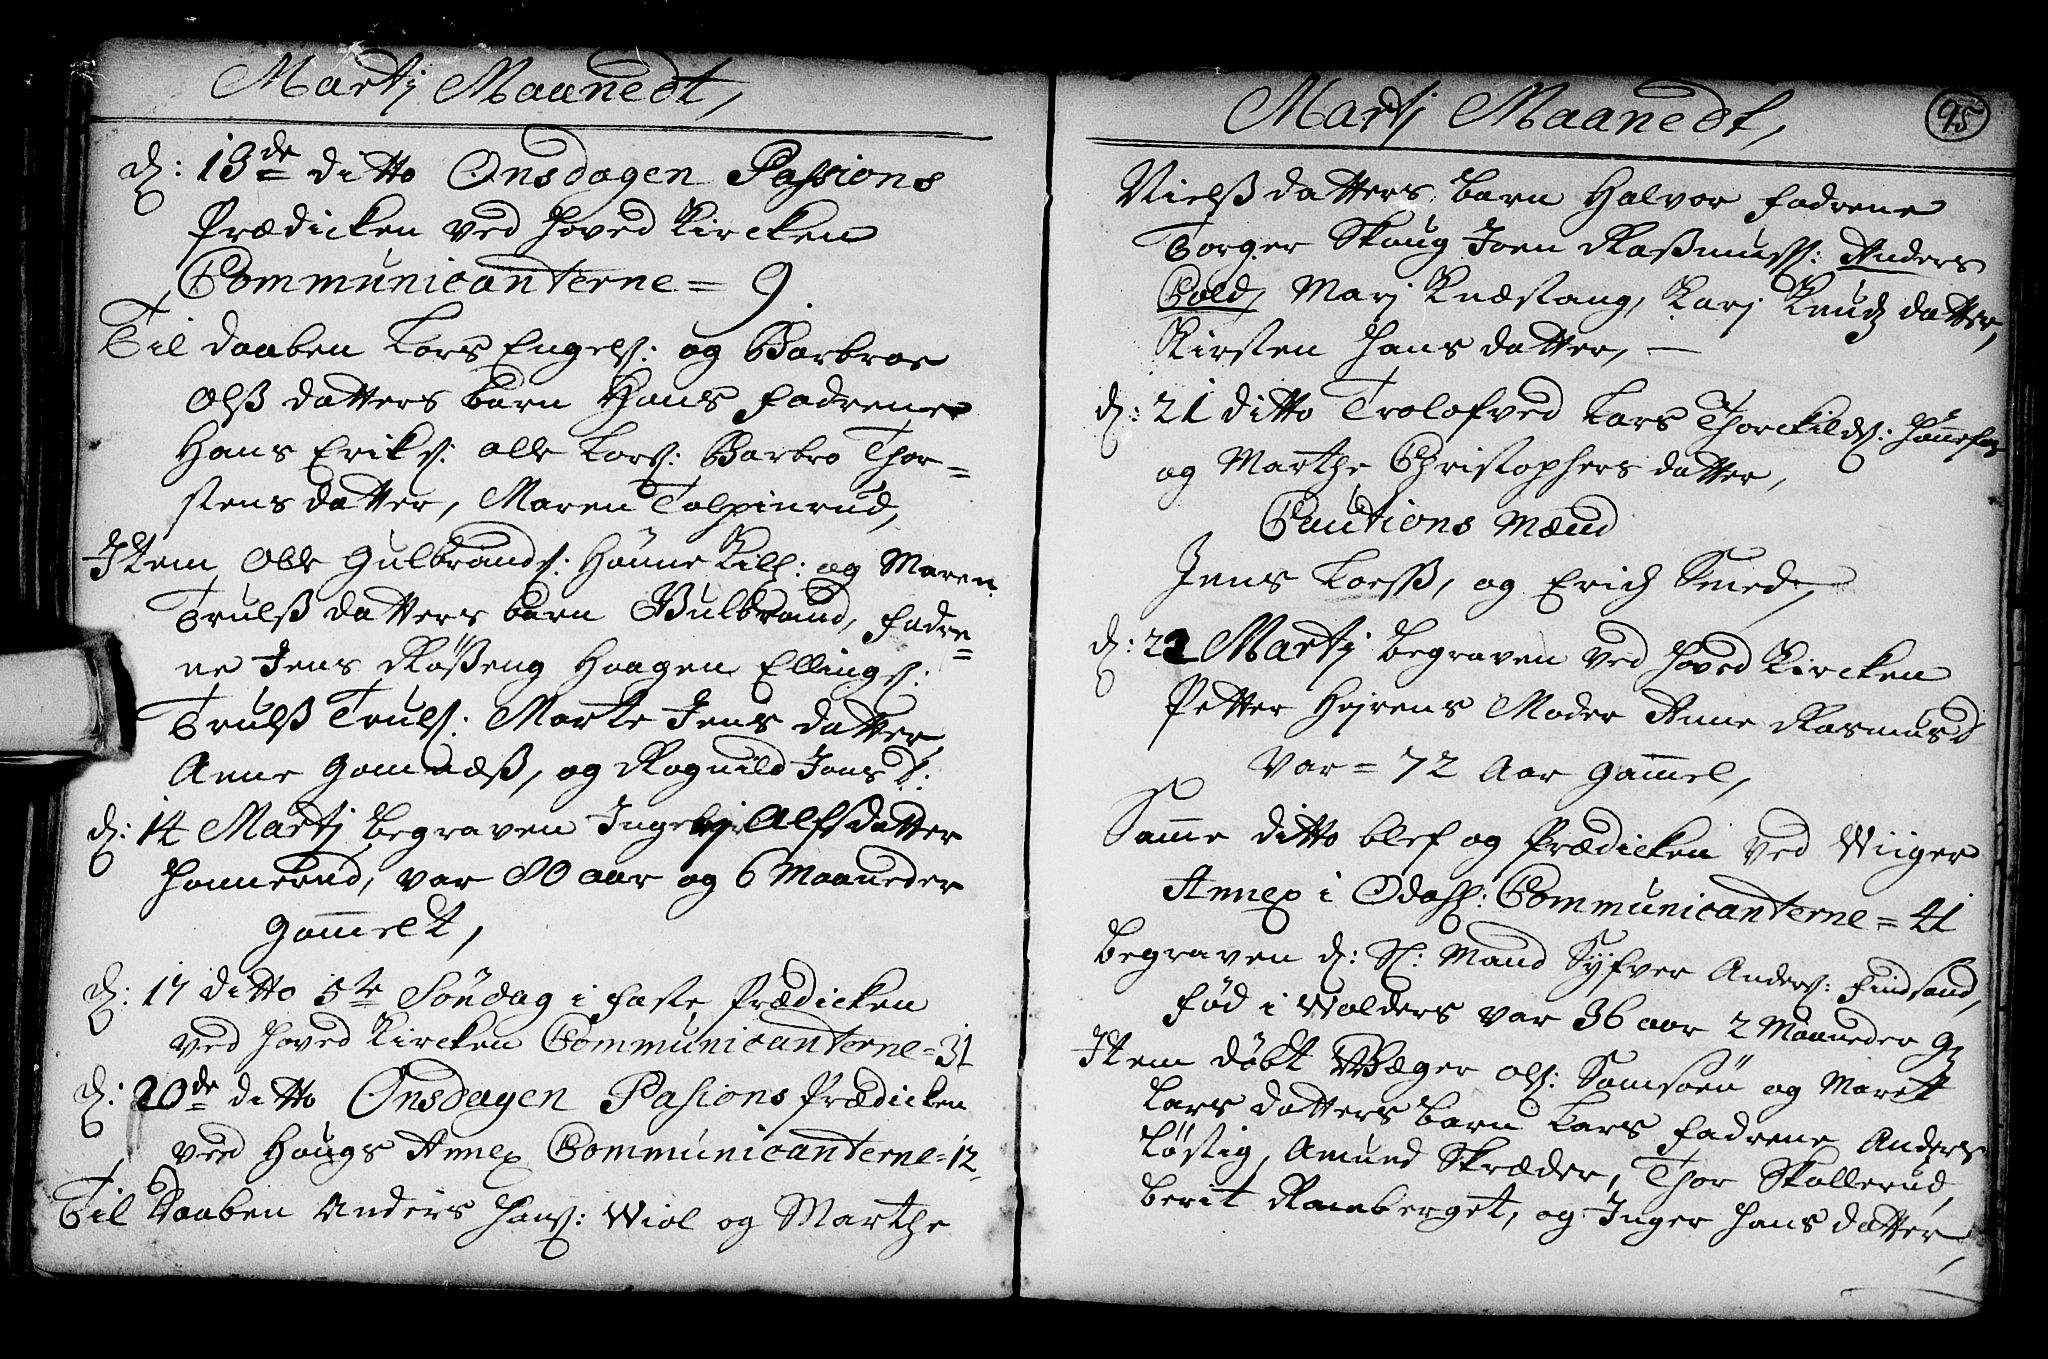 Martj Maanedt,
d: 13de ditto Onsdagen Passions
Prædicken ved hoved Kircken
Communicanterne = 9.
Til daaben Lars Engels: og Barbroe
Olß datters barn Hans fadrene
Hans Eriks: Olle Lars: Barbro Thor=
stens datter, Maren Tolpinrud,
Item Olle Gulbrands: Hønne Kill: og Maren
Trulß datters barn Gulbrand, fadre=
ne Jens Røßeng Haagen Ellings:
Trulß Truls: Marte Jens datter
Anne Gomnæß, og Rognild Jons d:
d: 14 Martj begraven Ingebor Alfsdatter
Honnerud, var 80 aar og 6 Maaneder
gammelt,
d: 17 ditto 5te Søndag i faste, Prædicken
ved hoved Kircken Communicanterne = 31
d: 20de ditto Onsdagen Pasions Prædicken
ved Hougs Annex Communicanterne = 12
Til Daaben Anders Hans: Wiol og Marthe
Martj Maanedt,
95
Nielß datters barn Halvor fadrene
Torger Skaug Joen Raßmuss: Anders
Cold, Marj Knæstang, Karj Knudz datter,
Kirsten Hans datter, —
d: 21 ditto Trolofved Lars Thorckilds:
og Marthe Christophers datter,
Cautions Mænd
Jens Loesß, og Erich Smed,
d: 22 Martj begraven ved hoved Kircken
Petter Hejrens Moder Anne Rasmusd
Var = 72 Aar gammel,
Samme ditto blef og Prædicken ved Wiiger
Annex i Odahl: Communicanterne = 41
begraven d: Sl: Mand Syfver Anders: Findsand,
fød i Walders var 36 aar 2 Maaneder
Item døbt Wæger ols: Samsøen og Marett
Lars datters barn Lars fadrene Anders
Løstig, Amund Skræder, Thor Skollerud
berit Ramberget, og Inger Hans datter,